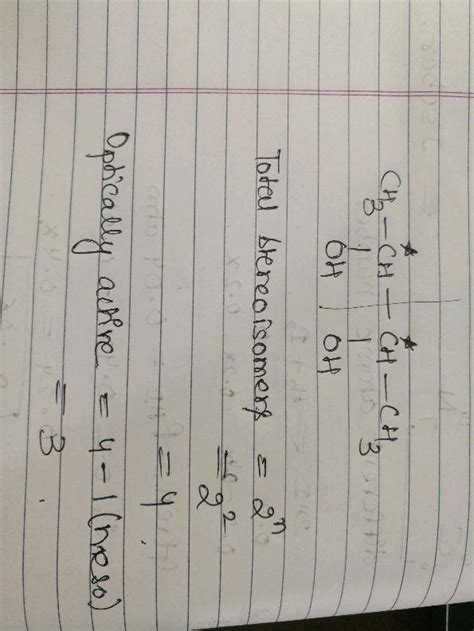 CH3 – *CH – *CH – CH3
OH OH
Total stereoisomers = 2^n
= 2^2
= 4
Optically active = 4 – 1 (meso)
= 3